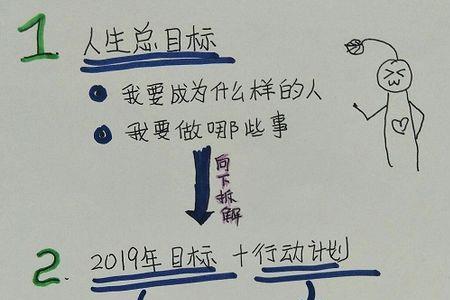 1 人生总目标
我要成为什么样的人
我要做哪些事
向下拆解
2. 2019年目标 + 行动计划